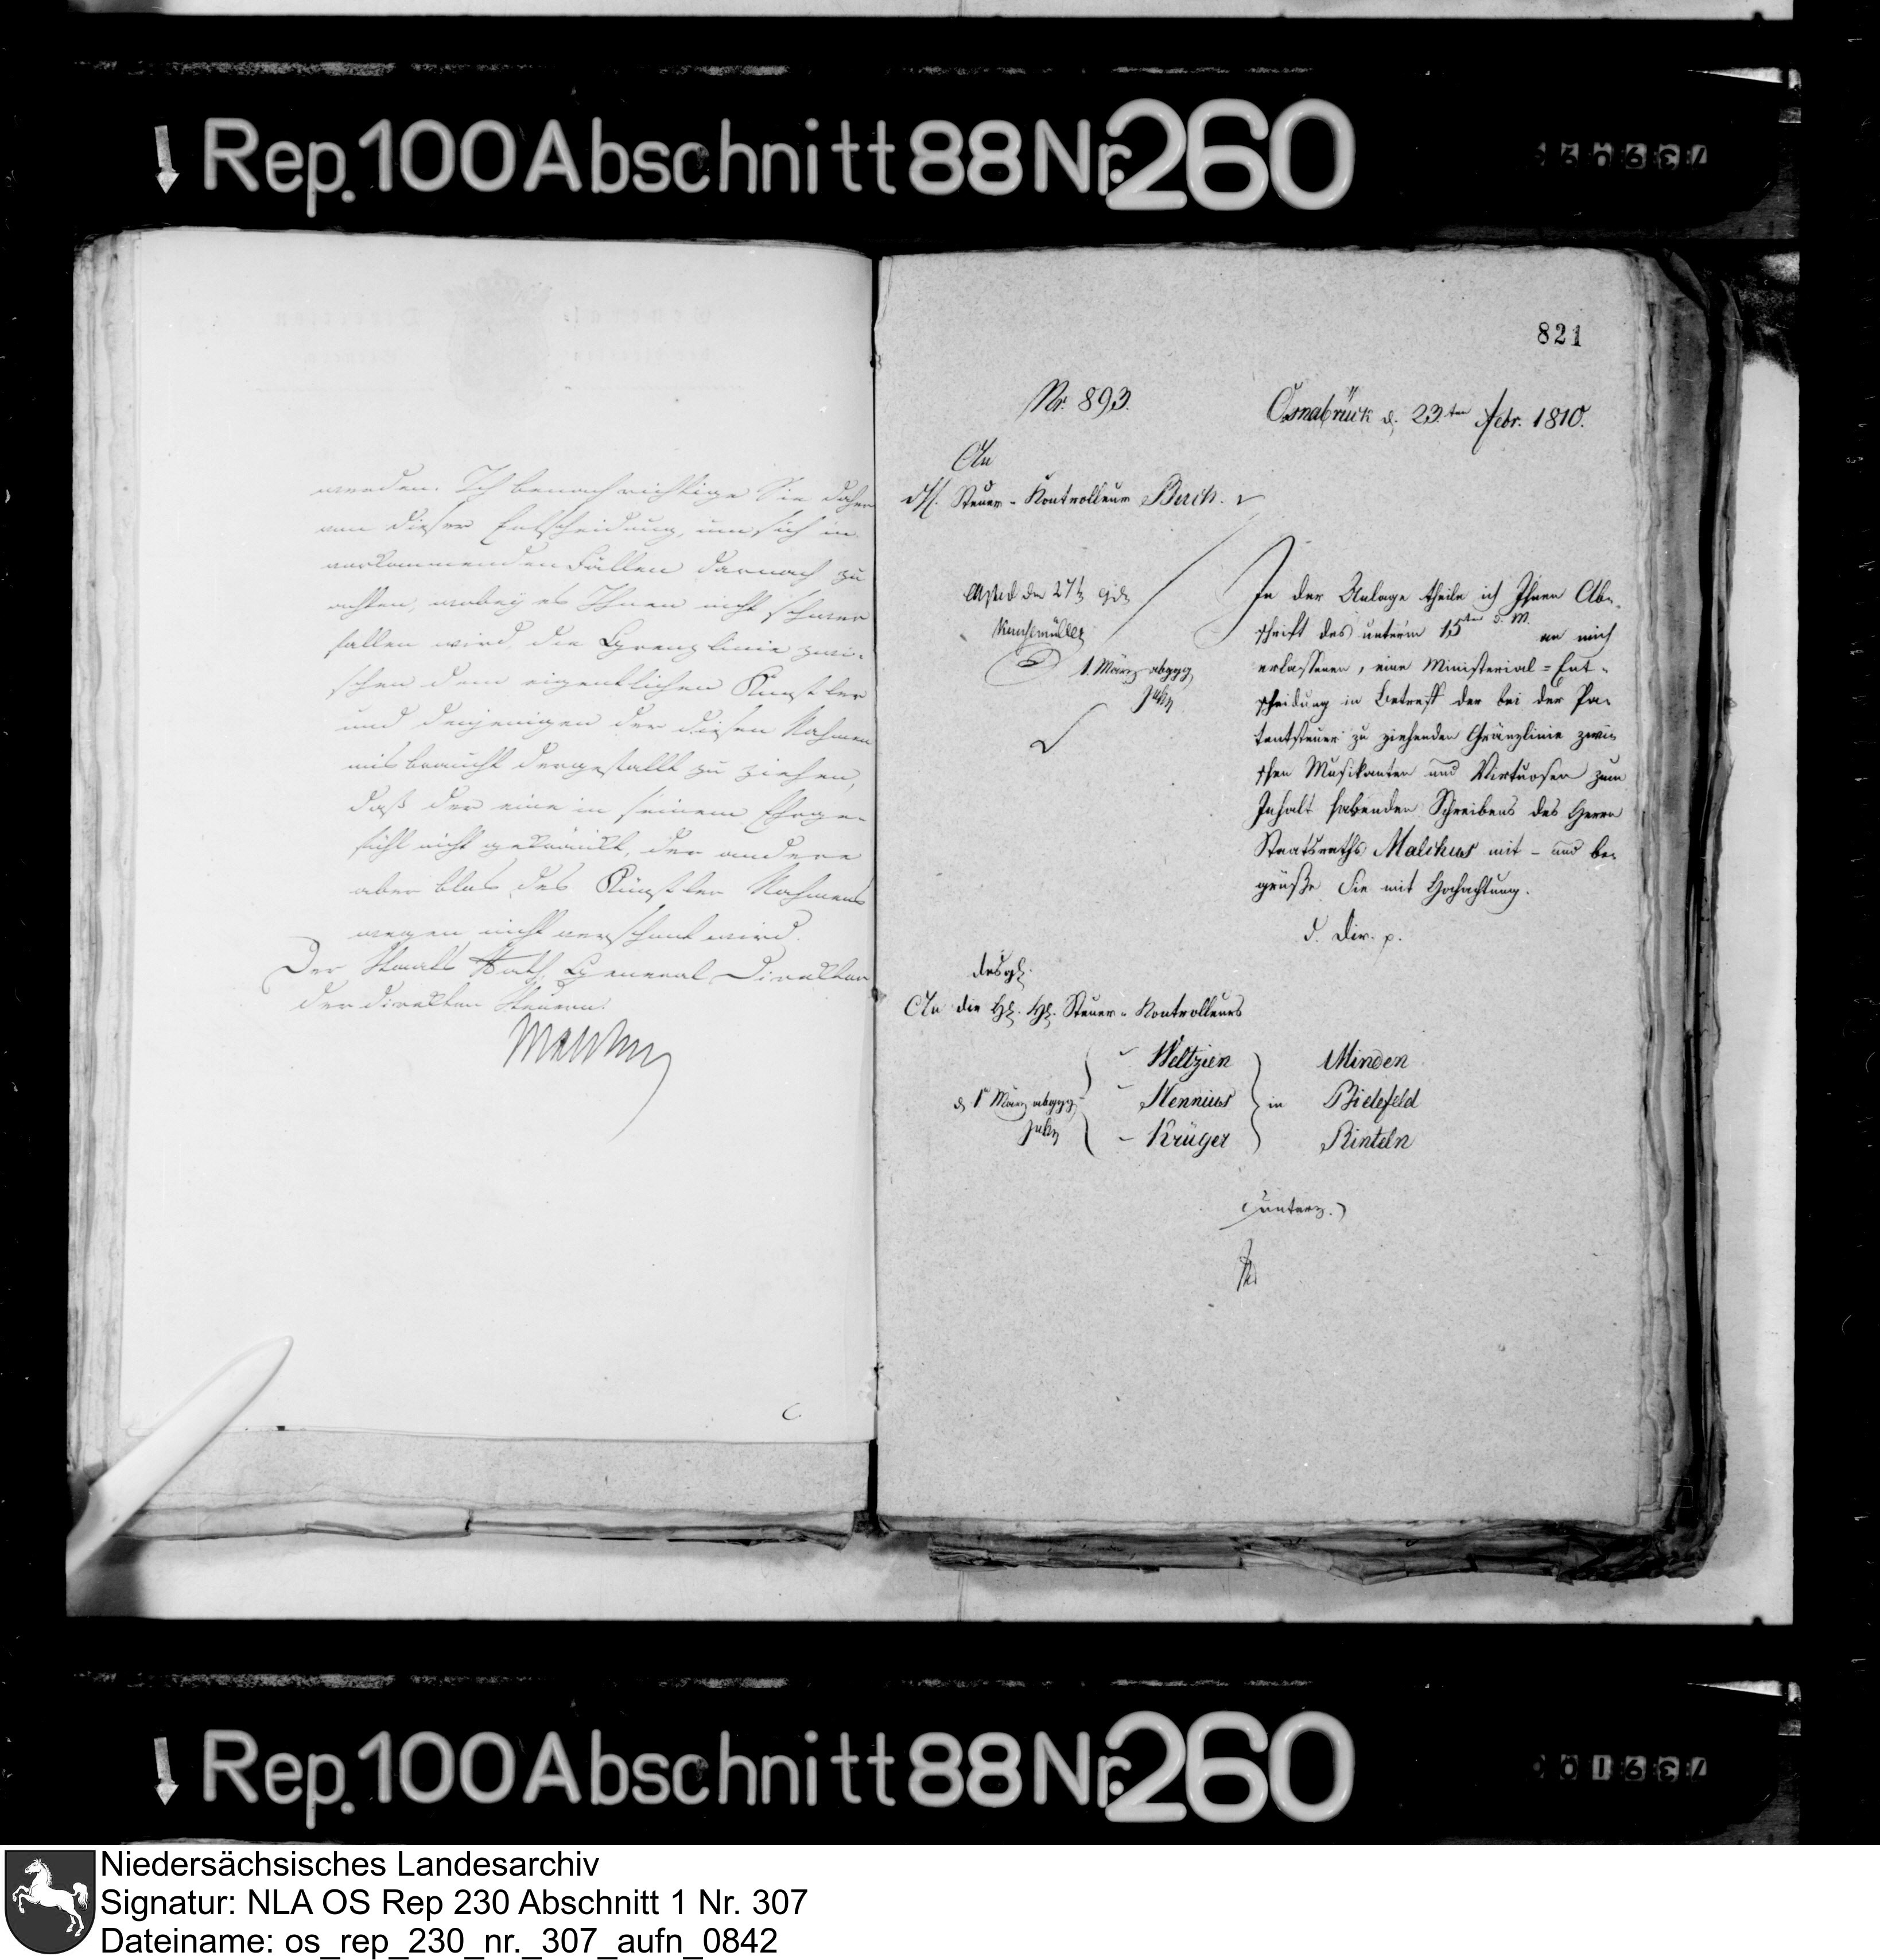 Rep. 100 Abschnitt 88 Nr. 260
werden. Ich benachrichtige Sie daher
von dieser Entscheidung, um sich in
vorkommenden Fällen darnach zu
achten, wobey es Ihnen nicht schwer
fallen wird, die Grenzlinie zwi-
schen dem eigentlichen Künstler
und denjenigen der diesen Nahmen
misbraucht dergestallt zu ziehen,
daß der eine in seinem Ehrge-
fühl nicht gekränkt, der andere
aber blos des Künstler Nahmens
wegen nicht verschont wird.
Der Staats Rath, General Direktor
der direkten Steuern.
Malchus
821
Nr. 893.
Osnabrück d. 23.ten Febr. 1810.
An
Steuer-Kontrolleur
In der Anlage theile ich Ihnen Ab-
schrift des unterm 15ten d. M. an mich
erlassenen, eine Ministerial=Ent-
scheidung in Betreff der bei der Pa-
tentsteuer zu ziehenden Gränzlinie zwi-
schen Musikanten und Virtuosen zum
Inhalt habenden Schreibens des Herrn
Staatsraths Malchus mit - und be-
grüße Sie mit Hochachtung.
d. Dir. p.
1. März abgeg.
desgl.
An die HH. HH. Steuer-Kontrolleurs
Weltzien Minden
d. 1 März abgeg. Hennius in Bielefeld
Krüger Rinteln
(unterz.)
Rep. 100 Abschnitt 88 Nr. 260
Niedersächsisches Landesarchiv
Signatur: NLA OS Rep 230 Abschnitt 1 Nr. 307
Dateiname: os_rep_230_nr._307_aufn_0842